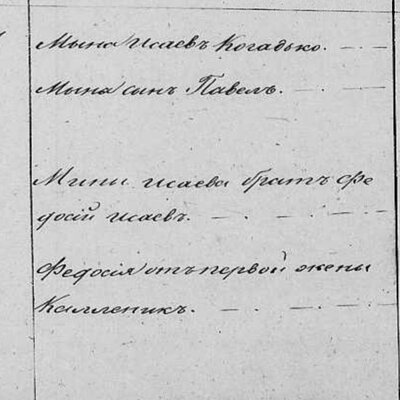 Мына Исаевъ Когадько.
Мына сынъ Павелъ.
Мини Исаева братъ Фе
досій Исаевъ.
Федосія отъ первой жены
Каленикъ.